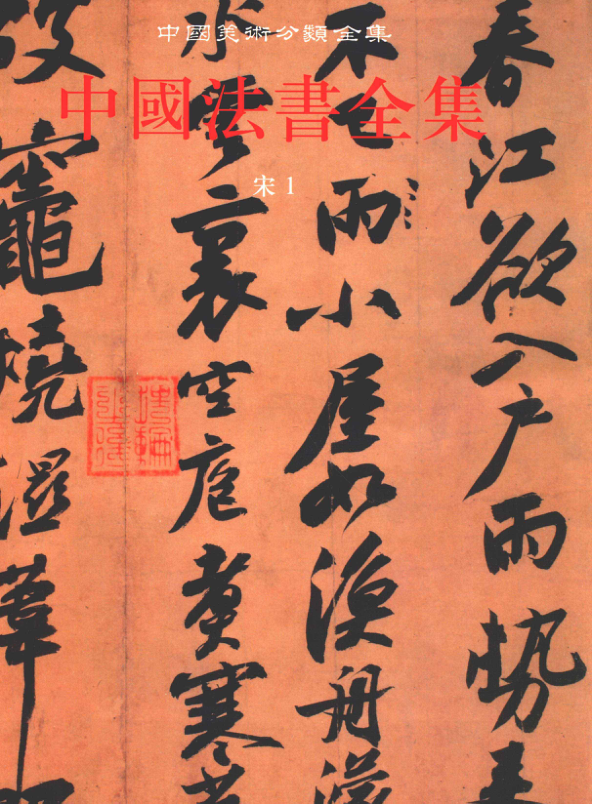 中國美術分類全集
中國法書全集
宋 1
春江欲入户雨勢来
不已雨小屋如漁舟濛
水雲裏空庖煮寒菜
破竈燒濕葦